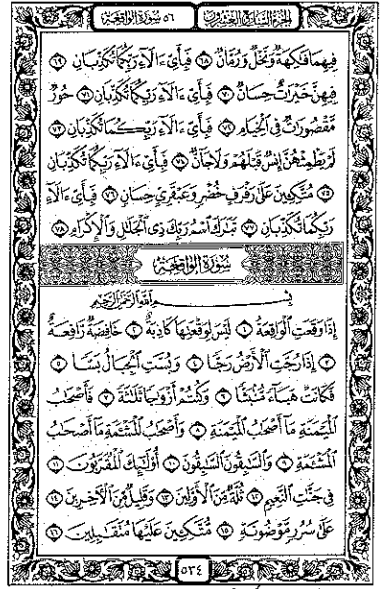 الجزء السابع والعشرون ٥٦ سورة الواقعة
فِيهِمَا فَٰكِهَةٌ وَنَخْلٌ وَرُمَّانٌ ٦٨ فَبِأَيِّ ءَالَآءِ رَبِّكُمَا تُكَذِّبَانِ ٦٩
فِيهِنَّ خَيْرَٰتٌ حِسَانٌ ٧٠ فَبِأَيِّ ءَالَآءِ رَبِّكُمَا تُكَذِّبَانِ ٧١ حُورٌ
مَّقْصُورَٰتٌ فِي الْخِيَامِ ٧٢ فَبِأَيِّ ءَالَآءِ رَبِّكُمَا تُكَذِّبَانِ ٧٣
لَمْ يَطْمِثْهُنَّ إِنسٌ قَبْلَهُمْ وَلَا جَآنٌّ ٧٤ فَبِأَيِّ ءَالَآءِ رَبِّكُمَا تُكَذِّبَانِ
٧٥ مُتَّكِـِٔينَ عَلَىٰ رَفْرَفٍ خُضْرٍ وَعَبْقَرِيٍّ حِسَانٍ ٧٦ فَبِأَيِّ ءَالَآءِ
رَبِّكُمَا تُكَذِّبَانِ ٧٧ تَبَٰرَكَ اسْمُ رَبِّكَ ذِي الْجَلَٰلِ وَالْإِكْرَامِ ٧٨
سُورَةُ الْوَاقِعَةِ
بِسْمِ اللَّهِ الرَّحْمَٰنِ الرَّحِيمِ
إِذَا وَقَعَتِ الْوَاقِعَةُ ١ لَيْسَ لِوَقْعَتِهَا كَاذِبَةٌ ٢ خَافِضَةٌ رَّافِعَةٌ
٣ إِذَا رُجَّتِ الْأَرْضُ رَجًّا ٤ وَبُسَّتِ الْجِبَالُ بَسًّا ٥
فَكَانَتْ هَبَآءً مُّنۢبَثًّا ٦ وَكُنتُمْ أَزْوَٰجًا ثَلَٰثَةً ٧ فَأَصْحَٰبُ
الْمَيْمَنَةِ مَآ أَصْحَٰبُ الْمَيْمَنَةِ ٨ وَأَصْحَٰبُ الْمَشْـَٔمَةِ مَآ أَصْحَٰبُ
الْمَشْـَٔمَةِ ٩ وَالسَّٰبِقُونَ السَّٰبِقُونَ ١٠ أُو۟لَٰٓئِكَ الْمُقَرَّبُونَ ١١
فِي جَنَّٰتِ النَّعِيمِ ١٢ ثُلَّةٌ مِّنَ الْأَوَّلِينَ ١٣ وَقَلِيلٌ مِّنَ الْآخِرِينَ ١٤
عَلَىٰ سُرُرٍ مَّوْضُونَةٍ ١٥ مُّتَّكِـِٔينَ عَلَيْهَا مُتَقَٰبِلِينَ ١٦
٥٣٤